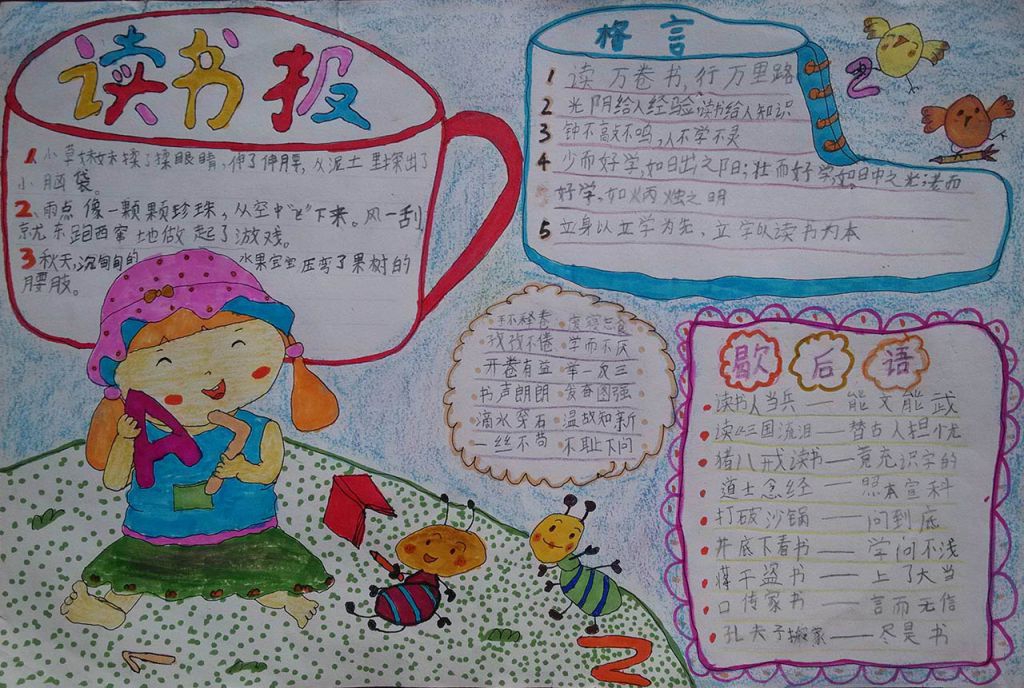 读书报
1、小草妹妹揉了揉眼睛，伸了伸腰，从泥土里探出了
小脑袋。
2、雨点像一颗颗珍珠，从空中"飞"下来。风一刮
就东跑西窜地做起了游戏。
3秋天，沉甸甸的 水果宝宝压弯了果树的
腰肢。
格言
1 读万卷书，行万里路
2 光阴给人经验，读书给人知识
3 钟不敲不鸣，人不学不灵
4 少而好学，如日出之阳；壮而好学，如日中之光；老而
好学，如炳烛之明
5 立身以立学为先，立学以读书为本
2
手不释卷 废寝忘食
孜孜不倦 学而不厌
开卷有益 举一反三
书声朗朗 发奋图强
滴水穿石 温故知新
一丝不苟 不耻下问
歇后语
读书人当兵——能文能武
读三国流泪——替古人担忧
猪八戒读书——冒充识字的
道士念经——照本宣科
打破沙锅——问到底
井底下看书——学问不浅
蒋干盗书——上了大当
口传家书——言而无信
孔夫子搬家——尽是书
A
1
Z